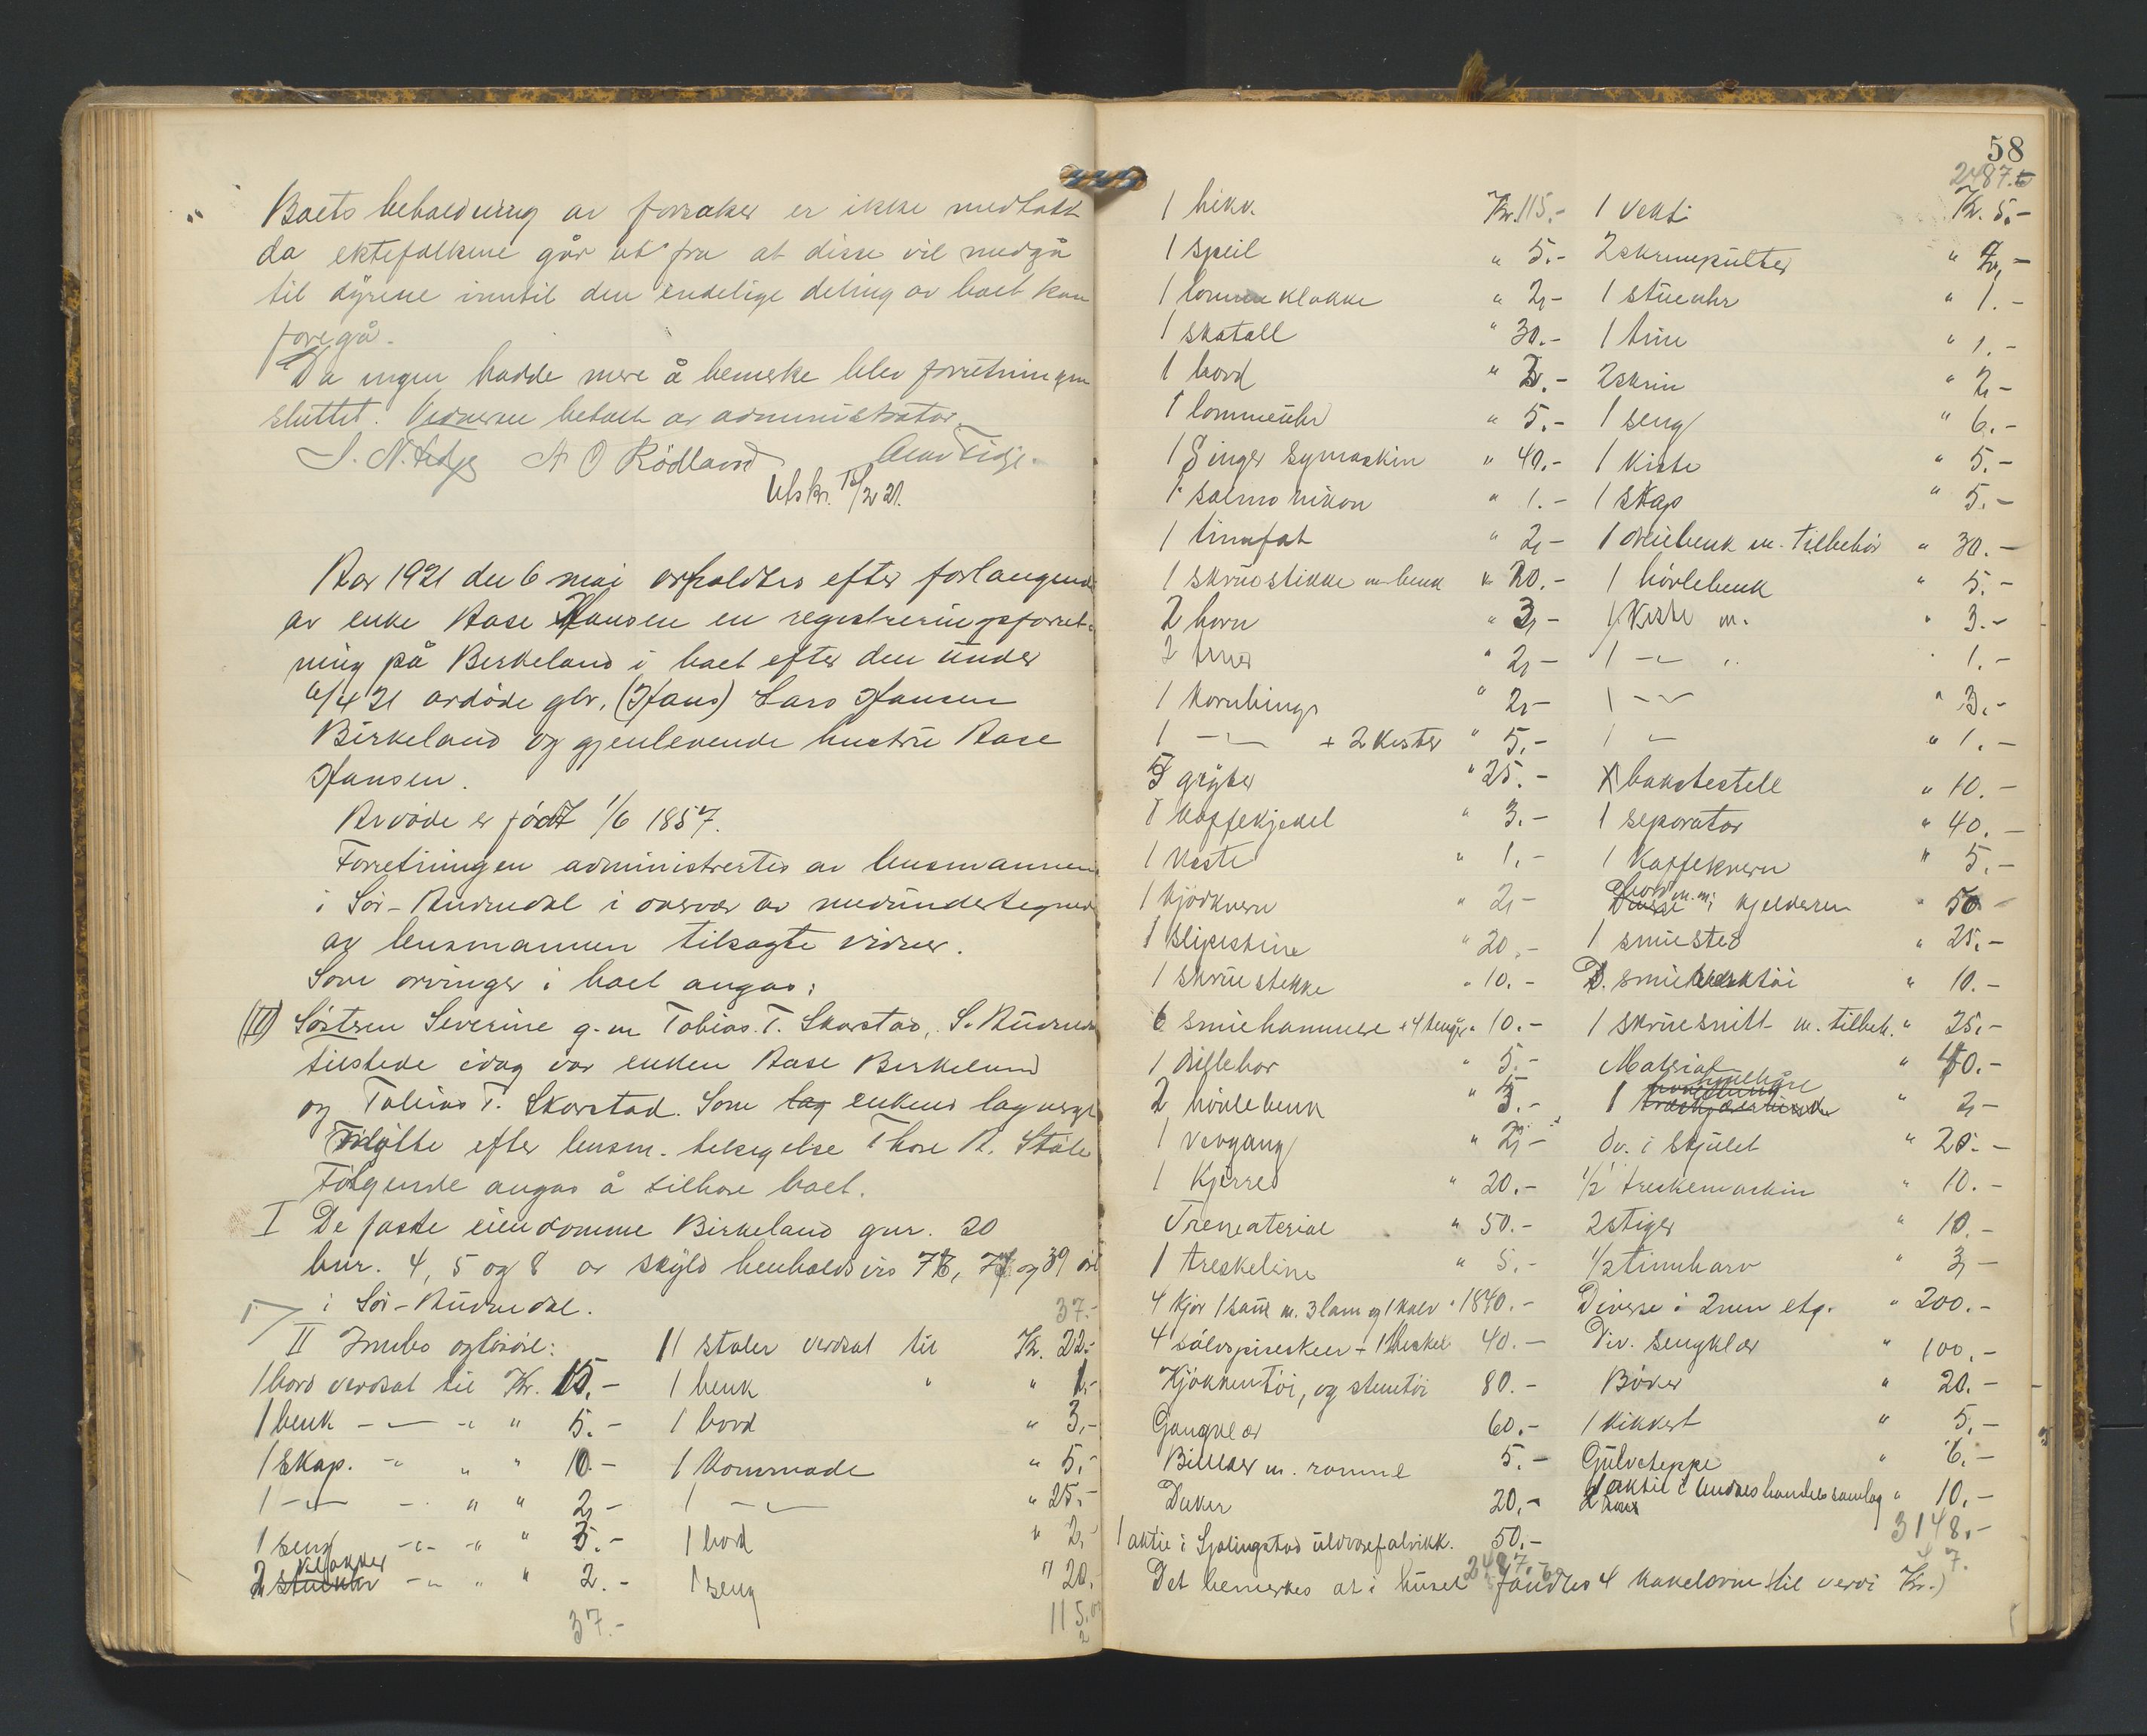 Boets beholdning av forsaker er ikke medtatt
da ektefolkene går ut fra at disse vil medgå
til dyrene inntil den endelige deling av boet kan
foregå.
Da ingen hadde mere å bemerke blev forretningen
sluttet. Vidnerne betalt av administrator.
A O Rödland
Utskr. 15/2 21.
Aar 1921 den 6 mai avholdtes efter forlangende
av enke Aase Hansen en registreringsforret-
ning på Birkeland i boet efter den under
6/4 21 avdöde gbr. (Hans) Lars Hansen
Birkeland og gjenlevende hustru Aase
Hansen.
Avdöde er födt 1/6 1857.
Forretningen administrertes av lensmannen
i Sör-Audnedal i overvær av medundertegnede
av lensmannen tilsagte vidner.
Som arvinger i boet angas:
Söstren Severine g. m. Tobias T. Skorstad, S. Audnedal
tilstede idag var enken Aase Birkeland
og Tobias T. Skorstad. Som enkens lagverge
mötte efter lensm. tilsigelse Thore A. Ståle
Fölgende angas å tilhöre boet.
I De faste eiendomme Birkeland gnr. 20
bnr. 4, 5 og 8 av skyld henholdsvis og 39 öre
i Sör-Audnedal.
37.-
II Innbo og lösöre: 11 stoler verdsat til Kr. 22.-
1 bord verdsat til Kr. 15.- 1 benk " " 1.-
1 benk - " - " " 5.- 1 bord " 3,-
1 Skap. - " " " 10.- 1 kommode " 5,-
1 - " - - " " 2,- 1 - " - " 25,-
1 seng - " - " " 5.- 1 bord " 2,-
2 vilakker - " " " 2.- 1 seng " 20,-
37.- 115.00
58
2487.
Kr. 115.- 1 vekt: Kr. 5.-
1 speil " 5.- 2 skrivepulter " 2,-
1 lommeklokke " 2,- 1 stueuhr " 1.-
1 skatoll " 30.- 1 tine " 1.-
1 bord " 2.- 2 skrin " 2,-
1 lommeuhr " 5.- 1 seng " 6.-
1 Singer Symaskin " 40.- 1 kiste " 5.-
1 salmonikon " 1.- 1 skap " 5.-
1 tinnfat " 2,- 1 dreiebenk m. tilbehör " 30.-
1 skruestikke m benk " 20.- 1 hövlebenk " 5.-
2 horn " 3,- 1 kiste m. " 3.-
2 tiner " 2,- 1 - " - " " 1.-
1 kornbinge " 2,- 1 - " - " 3.-
1 - " - + 2 kister " 5.- 1 " " 1.-
5 gryter " 25.- bakstestell " 10.-
1 kaffekjedel " 3.- 1 separator " 40.-
1 kiste " 1.- 1 kaffekvern " 5.-
1 kjödkvern " 2,- bord m. m. i kjelderen " 50-
1 slipestine " 20.- 1 smiested " 25.-
1 skruestikke " 10.- D. smieverktöi " 10.-
6 smiehammere + 4 tenger " 10.- 1 skruesnitt m. tilbeh. " 25.-
1 drillebor " 5.- Material " 40.-
2 hövlebenk " 5.- 1 " 2,-
1 vevgang " 2,- Dv. i skjulet " 20.-
1 kjerre " 20.- 1/2 treskemaskin " 10.-
Trematerial " 50.- 2 stiger " 10.-
1 treskeline " 5.- 1/2 tinnharv " 3,-
4 kjör 1 sau m. 3 lam og 1 kalv " 1840.- Diverse i 2nen etg. " 200.-
4 sölvspiseskeer + 1 theskei 40.- Div. sengklær " 100.-
Kjökkentöi, og stentöi 80.- Böker " 20.-
Gangklær 60.- 1 kikkert " 5.-
Billeder m. ramme 5.- Gulvteppe " 6.-
Duker 20.- 1 aktie i Undals handelssamlag " 10.-
3148.-
1 aktie i Sjölingstad uldvarefabrikk. 50.-
Det bemerkes at i huset fandtes 4 kakelovne (til verdi Kr.)